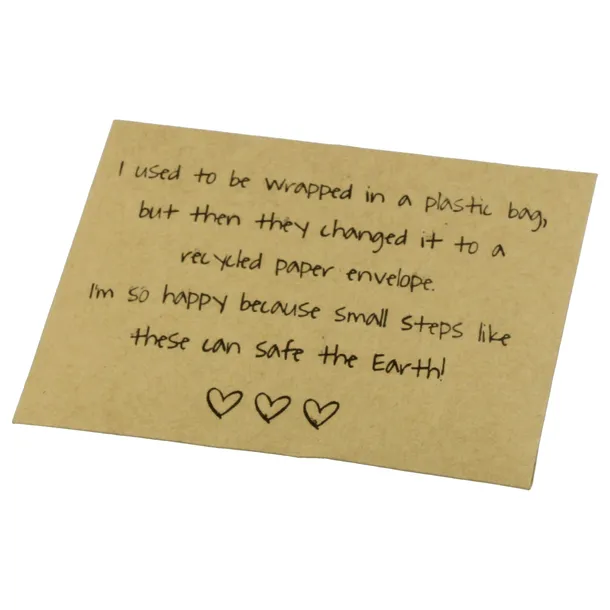 I used to be wrapped in a plastic bag,
but then they changed it to a
recycled paper envelope.
I'm so happy because small steps like
these can safe the Earth!